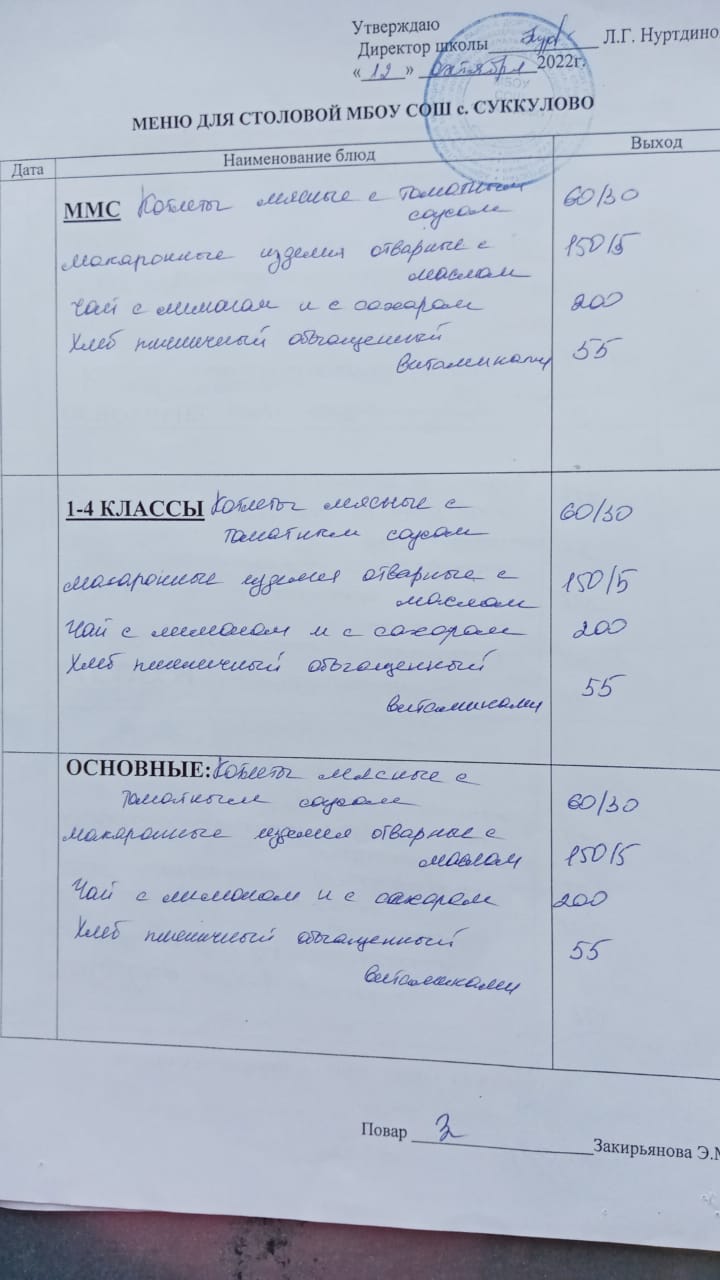 Утверждаю
Директор школы Л.Г. Нуртдино
« 12 » октября 2022г.
МБОУ
СОШ
МЕНЮ ДЛЯ СТОЛОВОЙ МБОУ СОШ с. СУККУЛОВО
Дата Наименование блюд Выход
ММС Котлеты мясные с томатным 60/30
соусом
макаронные изделия отварные с 150/5
маслом
Чай с лимоном и с сахаром 200
Хлеб пшеничный обогащенный
витаминами 55
1-4 КЛАССЫ Котлеты мясные с 60/30
томатным соусом
макаронные изделия отварные с 150/5
маслом
Чай с лимоном и с сахаром 200
Хлеб пшеничный обогащенный
витаминами 55
ОСНОВНЫЕ: Котлеты мясные с
томатным соусом 60/30
макаронные изделия отварные с
маслом 150/5
Чай с лимоном и с сахаром 200
Хлеб пшеничный обогащенный 55
витаминами
Повар Закирьянова Э.